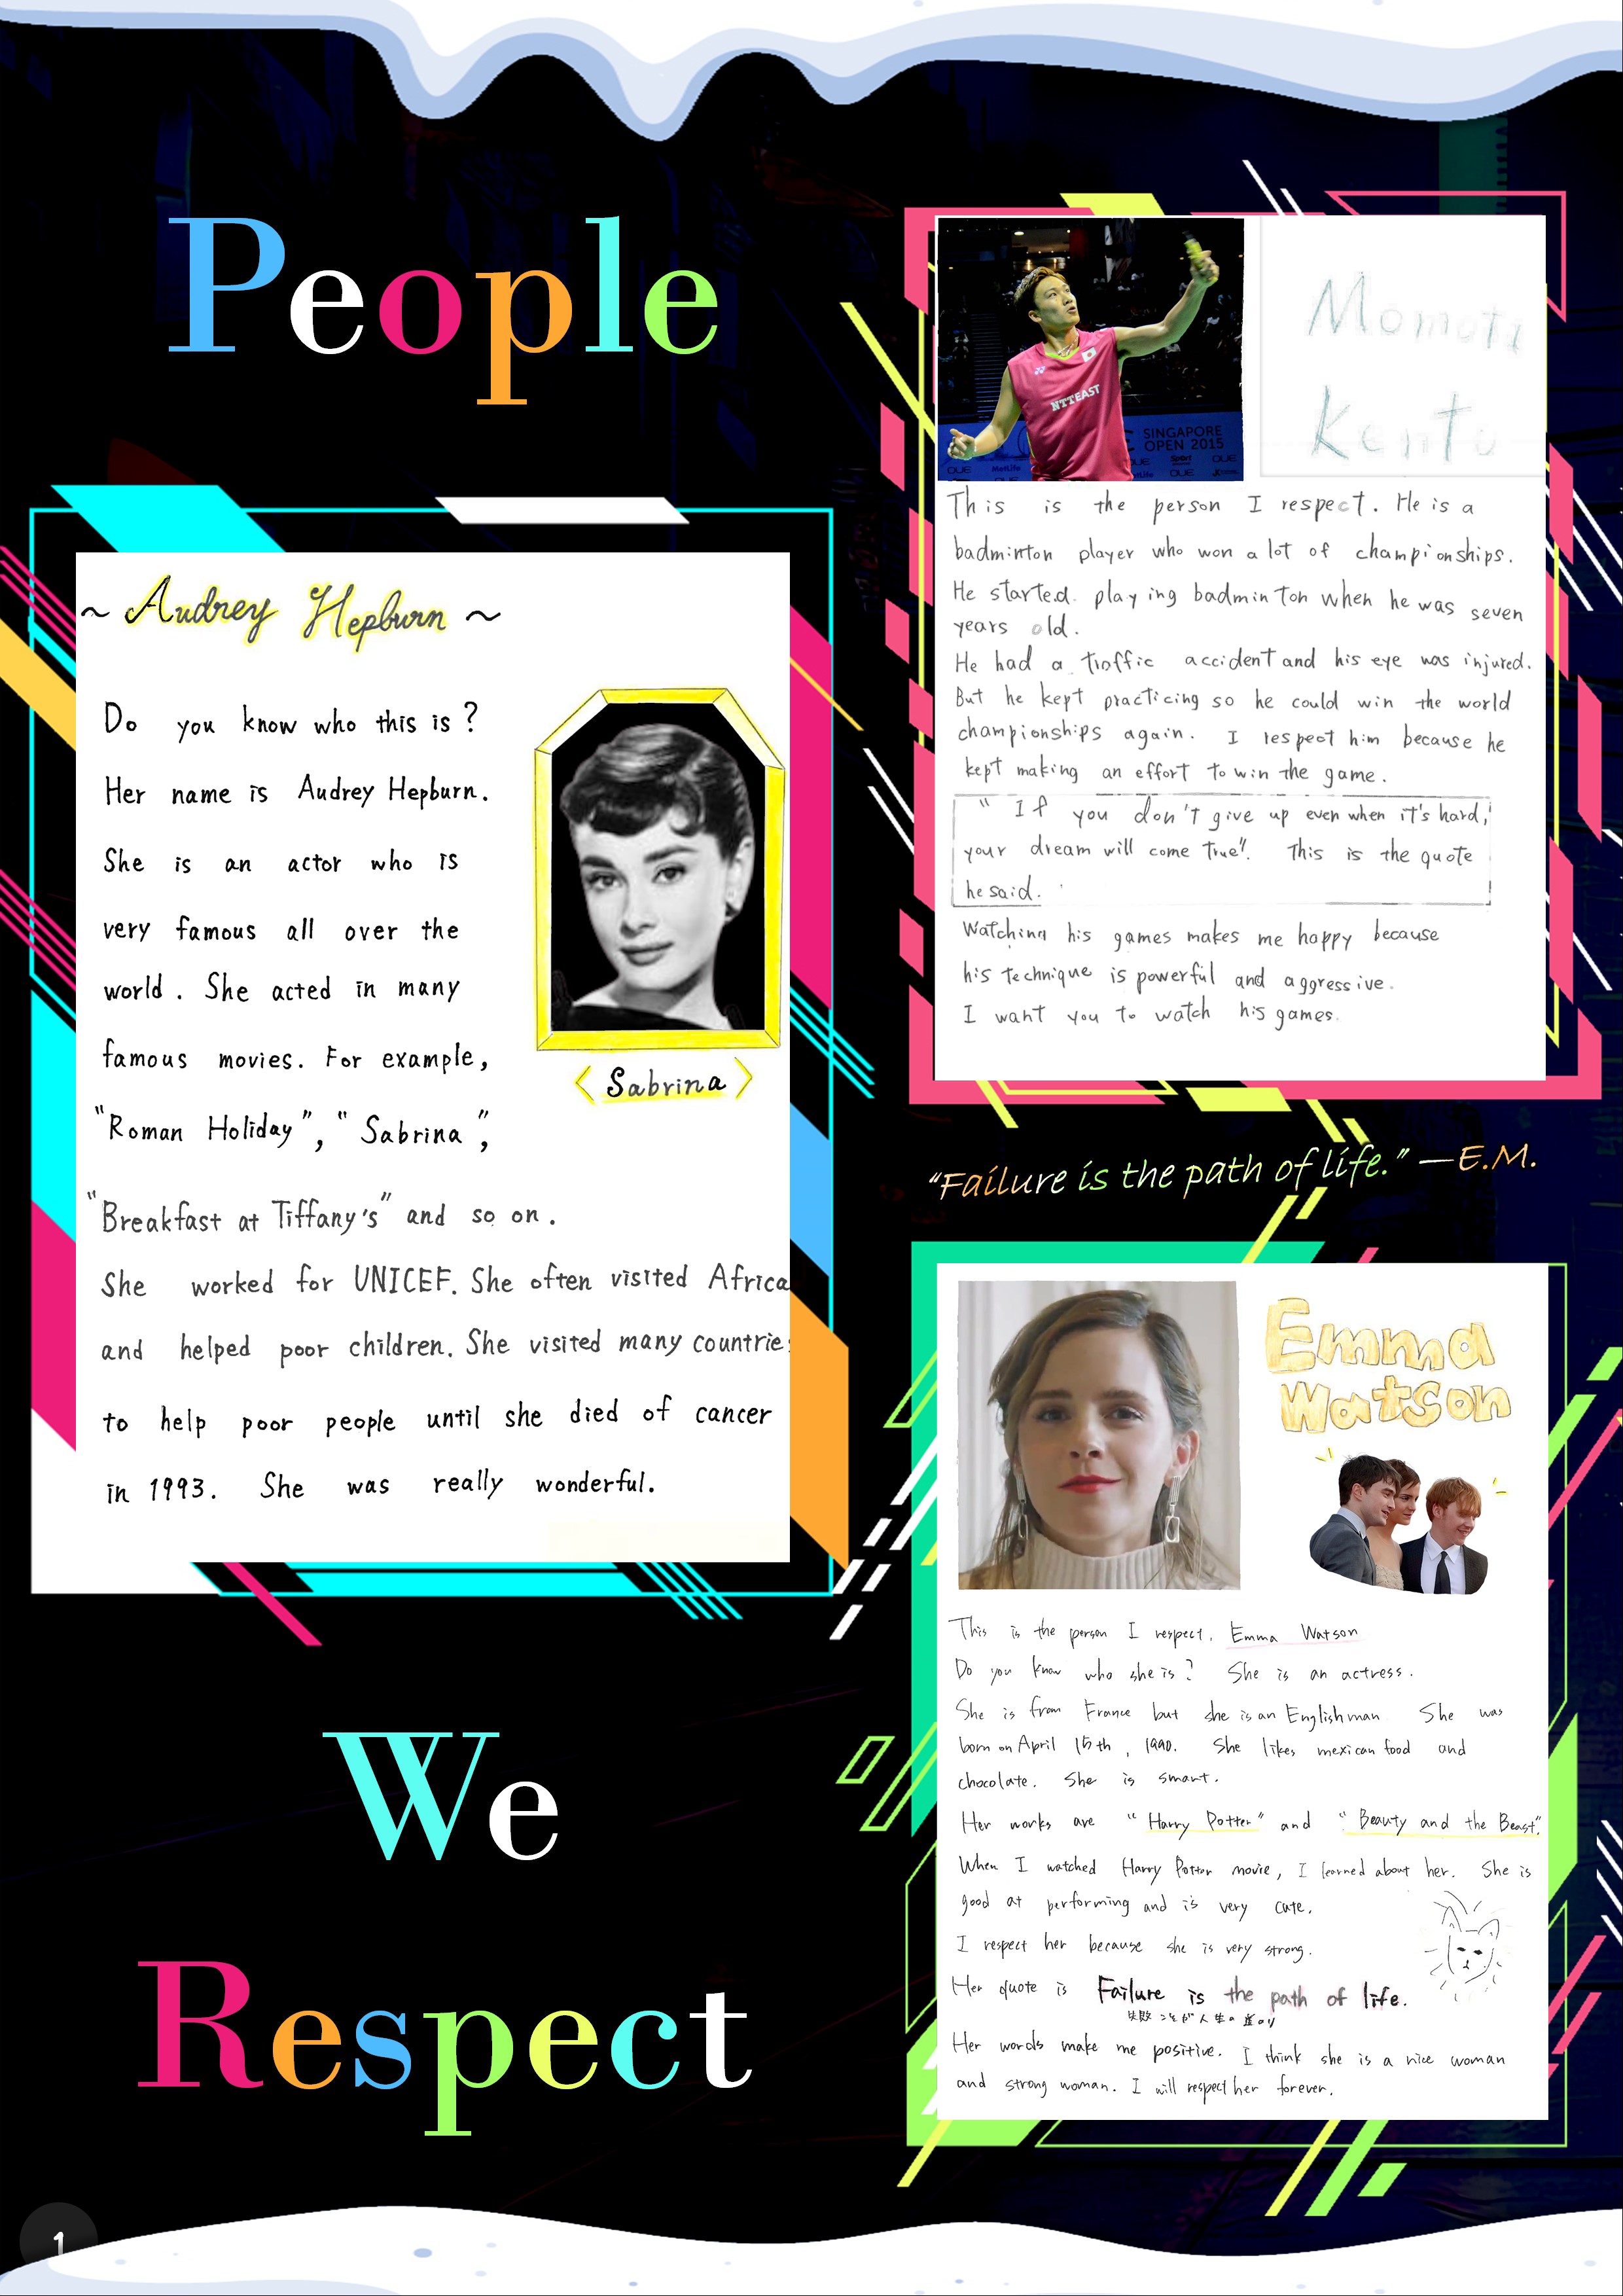 People
~ Audrey Hepburn ~
Do you know who this is?
Her name is Audrey Hepburn.
She is an actor who is
very famous all over the
world. She acted in many
famous movies. For example,
"Roman Holiday", "Sabrina",
"Breakfast at Tiffany's" and so on.
She worked for UNICEF. She often visited Africa
and helped poor children. She visited many countrie
to help poor people until she died of cancer
in 1993. She was really wonderful.
< Sabrina >
We
Respect
1
NTTEAST
SINGAPORE
OPEN 2015
OUE
MetLife
OUE
OUE
Momota
Kento
This is the person I respect. He is a
badminton player who won a lot of championships.
He started playing badminton when he was seven
years old.
He had a traffic accident and his eye was injured.
But he kept practicing so he could win the world
championships again. I respect him because he
kept making an effort to win the game.
" If you don't give up even when it's hard,
your dream will come true". This is the quote
he said.
Watching his games makes me happy because
his technique is powerful and aggressive.
I want you to watch his games.
"Failure is the path of life." —E.M.
Emma
Watson
This is the person I respect. Emma Watson
Do you know who she is? She is an actress.
She is from France but she is an Englishman. She was
born on April 15th, 1990. She likes mexican food and
chocolate. She is smart.
Her works are "Harry Potter" and "Beauty and the Beast".
When I watched Harry Potter movie, I learned about her. She is
good at performing and is very cute.
I respect her because she is very strong.
Her quote is Failure is the path of life.
失敗こそが人生の道のり
Her words make me positive. I think she is a nice woman
and strong woman. I will respect her forever.